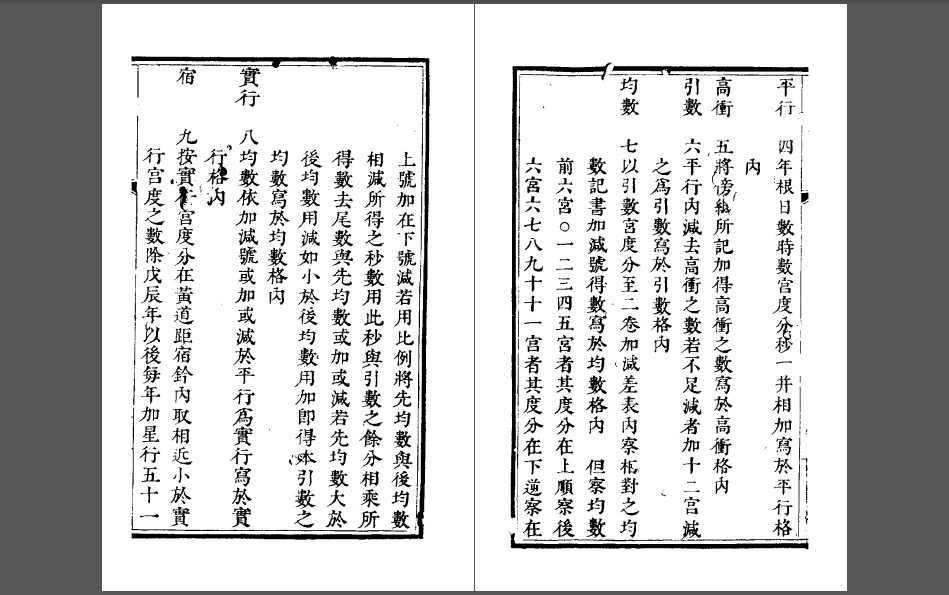 平行　四年根日數時數宮度分秒一并相加寫於平行格
內
高衝　五將傍紙所記加得高衝之數寫於高衝格內
引數　六平行內減去高衝之數若不足減者加十二宮減
之爲引數寫於引數格內
均數　七以引數宮度分至二卷加減差表內察相對之均
數記書加減號得數寫於均數格內　但察均數
前六宮○一二三四五宮者其度分在上順察後
六宮六七八九十十一宮者其度分在下逆察在
上號加在下號減若用比例將先均數與後均數
相減所得之秒數用此秒與引數之餘分相乘所
得數去尾數與先均數或加或減若先均數大於
後均數用減如小於後均數用加卽得本引數之
均數寫於均數格內
實行　八均數依加減號或加或減於平行爲實行寫於實
行格內
宿　九按實行宮度分在黃道距宿鈐內取相近小於實
行宮度之數除戊辰年以後每年加星行五十一